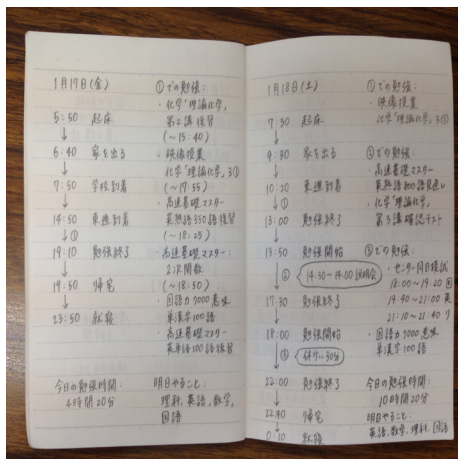 1月17日(金)
5:50 起床
↓
6:40 家を出る
↓
7:50 学校到着
↓
14:50 東進到着
↓①
19:10 勉強終了
↓
19:50 帰宅
↓
23:50 就寝
今日の勉強時間:
4時間20分
①での勉強:
・化学「理論化学」
第2講復習
(~15:40)
・映像授業
化学「理論化学」3①
(~17:55)
・高速基礎マスター
英熟語350語復習
(~18:25)
・高速基礎マスター:
2次関数
(~18:50)
・国語力7000意味
単漢字100語
・高速基礎マスター
英単語100語復習
明日やること:
理科、英語、数学、
国語
1月18日(土)
7:30 起床
↓
9:30 家を出る
↓
10:20 東進到着
↓①
13:00 勉強終了
↓
13:50 勉強開始
↓②
17:30 勉強終了
↓
18:00 勉強開始
↓③ 休けい30分
22:00 勉強終了
↓
22:40 帰宅
↓
0:10 就寝
①での勉強:
・映像授業
化学「理論化学」3①
②での勉強:
・高速基礎マスター
・化学「理論化学」
第3講確認テスト
③での勉強:
・センター同日模試
18:00~19:20 国
19:40~21:00 英
21:10~21:40 リ
・国語力7000意味
単漢字100語
今日の勉強時間:
10時間20分
明日やること:
英語、数学、理科、国語